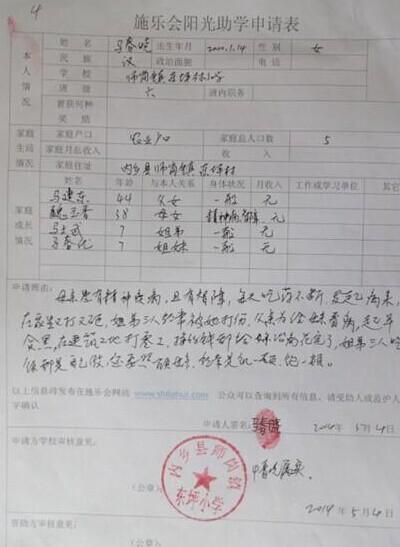 4
施乐会阳光助学申请表
本人情况 姓名 马春晓 出生年月 2000.1.14 性别 女
民族 汉 政治面貌 电话
学校 师岗镇东坪小学
班级 六 班内职务
曾获何种奖励
家庭生活情况 家庭户口 农业户口 家庭总人口数 5
家庭月总收入 收入
家庭住址 内乡县师岗镇东坪村
家庭成员情况 姓名 年龄 与本人关系 身体状况 月收入 工作或学习单位 其它
马建东 44 父女 一般 无
魏玉香 38 母女 精神病、智障 无
马 7 姐弟 一般 无
马春 7 姐妹 一般 无
申请理由：
母亲患有精神疾病，且有智障，每天吃药不断，发起病来，
在家里又打又砸，姐弟三人经常被她打伤，父亲为给妹看病，起早
贪黑，在建筑工地打零工，挣的钱都给妹治病花完了，姐弟三人吃
饭都是自己做，还要照顾妹，经常是饥一顿，饱一顿。
以上信息将发布在施乐会网站 www.shilehui.com 公众可以查询到所有信息，请受助人或监护人
字确认
申请人签名： 马春晓 2014年5月4日
申请方学校审核意见：
内乡县师岗镇
东坪小学
情况属实
（公章） 2014年5月4日
资助方审核意见：
（公章） 年 月 日